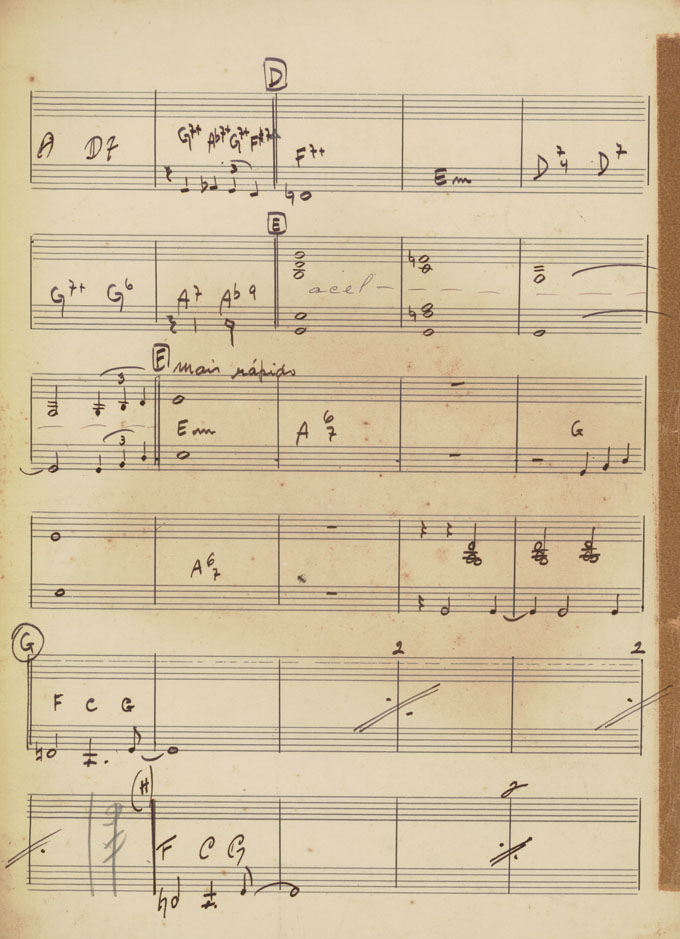 D
A D7 G7+ Ab7+ G7+ F#7+ F7+ Em D74 D7
3
E
G7+ G6 A7 Ab9 acel -
F mais rápido
3
Em A67 G
3
A67
G
2 2
F C G
H
2
F C G